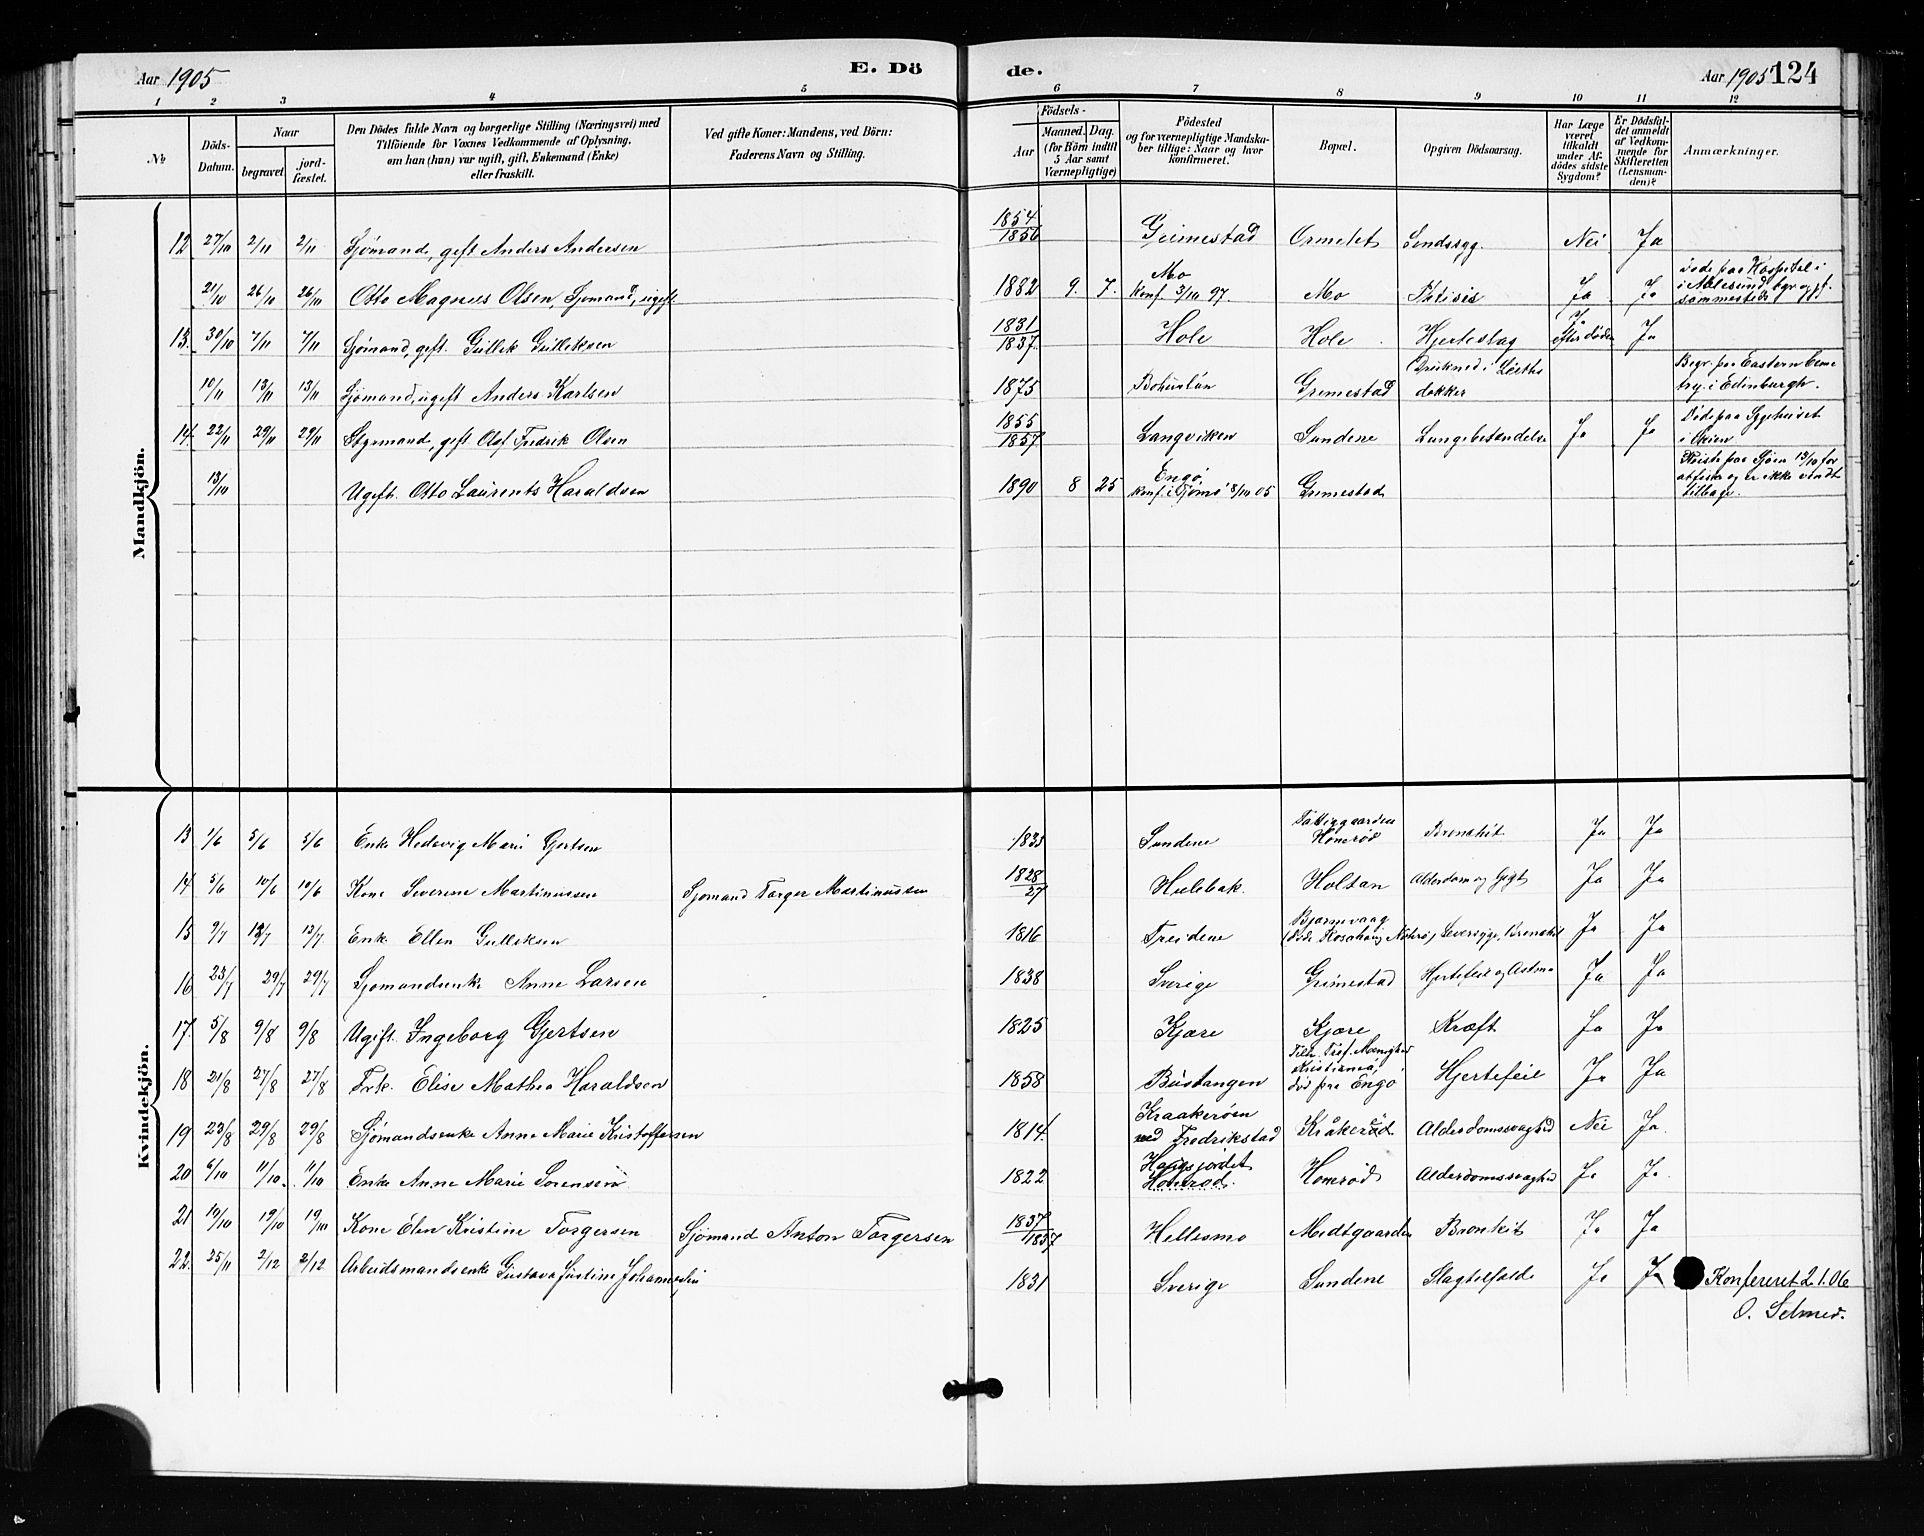 Aar 1905 E. Dö de. Aar 1905 124
1 2 3 4 5 6 7 8 9 10 11 12
№
Döds-Datum.
Naar begravet. jord-fæstet.
Den Dödes fulde Navn og borgerlige Stilling (Næringsvei) med Tilföiende for Voxnes Vedkommende af Oplysning, om han (hun) var ugift, gift, Enkemand (Enke) eller fraskilt.
Ved gifte Koner: Mandens, ved Börn: Faderens Navn og Stilling.
Födsels-
Aar Maaned. Dag. (for Börn indtil 5 Aar samt Værnepligtige)
Födested og for værnepligtige Mandskaber tillige: Naar og hvor konfirmeret.
Bopæl.
Opgiven Dödsaarsag.
Har Læge været tilkaldt under Afdödes sidste Sygdom?
Er Dödsfaldet anmeldt af Vedkommende for Skifteretten (Lensmanden)?
Anmærkninger.
Mandkjön.
12 27/10 2/11 2/11 Sjömand, gift Anders Andersen 1854/1856 Grimestad Ormelet Sindssyg. Nei Ja
21/10 26/10 26/10 Otto Magnus Olsen, Sjömand, ugift 1882 9. 7. Mo Konf. 3/10 97. Mo Phtisis Ja Ja Död paa Hospital i Aalesund, bgr og jf. sammesteds
13. 30/10 7/11 7/11 Sjömand, gift. Gullik Gulliksen 1831/1837. Hole Hole Hjerteslag Ja efter döden Ja
10/11 13/11 13/11 Sjömand, ugift Anders Karlsen 1875 Bohuslän Grimestad Drukned i Leiths dokker Begr. paa Eastern Cemetry i Edinburgh.
14. 22/11 29/11 29/11 Styrmand, gift Olaf Fredrik Olsen 1855/1857 Langviken Sundene Lungebetændelse Ja Ja Döde paa Sygehuset i
13/10 Ugift. Otto Laurents Haraldsen 1890 8 25 Engö, Konf. i Tjömö 8/10 05 Grimestad Reiste paa Sjöen 13/10 for at fiske og er ikke vendt tilbage.
Kvindekjön.
13 1/6 5/6 5/6 Enke Hedevig Marie Gjertsen 1835 Sundene Fattiggaarden Honerød Bronkit Ja Ja
14 5/6 10/6 10/6 Kone Severine Martinussen Sjømand Torger Martinussen 1828/27 Hulebak. Holtan Alderdom og Gigt Ja Ja
15 9/7 13/7 13/7 Enke Ellen Gulliksen 1816 Treidene Bjørnevaag (Døde Rosahaug Nøtterø) Leversyge, Bronchit Ja Ja
16 23/7 29/7 29/7 Sjømandsenke Anne Larsen 1838 Sverige Grimestad Hjertefeil og Astma Ja Ja
17. 5/8 9/8 9/8 Ugift. Ingeborg Gjertsen 1825 Kjære Kjære Kræft Ja Ja
18 21/8 27/8 27/8 Frk. Elise Mathea Haraldsen 1858 Bustangen Tilh. Tref. Menighed Kristiania, död paa Engö Hjertefeil Ja Ja
19 23/8 29/8 29/8 Sjømandsenke Anne Marie Kristoffersen 1814. Kraakerøen ved Fredrikstad Kråkerød Alderdomssvaghed Nei Ja.
20 6/10 11/10. 11/10 Enke Anne Marie Sørensen 1822 Haugsjordet Honerød. Honerød Alderdomssvaghed Ja Ja.
21 14/10 19/10 19/10 Kone Elen Kristine Torgersen Sjømand Anton Torgersen 1837/1837 Hellesmo Medtgaarden Bronkit Ja Ja
22. 25/11 2/12 2/12 Arbeidsmandsenke Gustava Justine Johannesen 1831 Sverige Sundene Slagtilfælde Ja Ja Konfereret 2.1.06
O. Selmer.